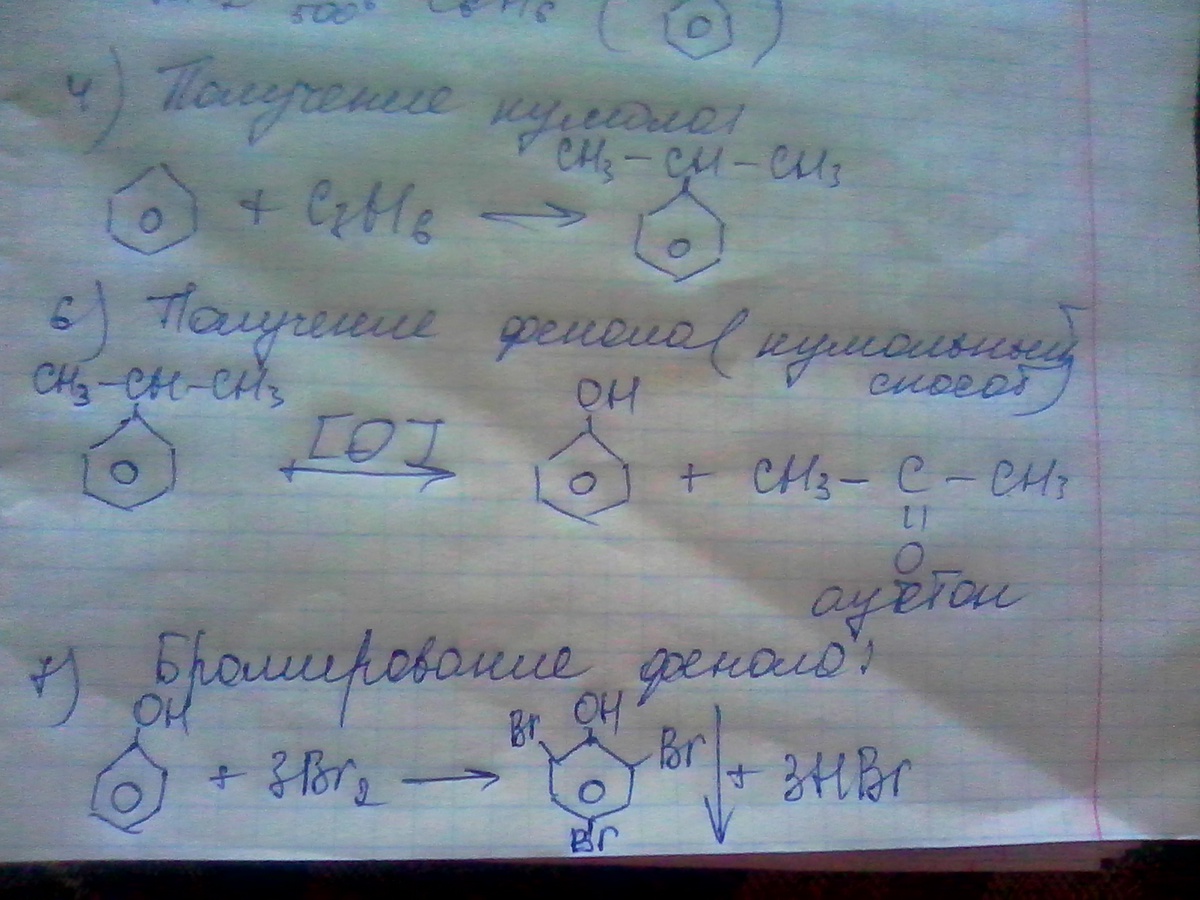 500° C6H6 ( )
4) Получение кумола:
CH3 – CH – CH3
+ C3H6 →
6) Получение фенола (кумольный
способ)
CH3 – CH – CH3
OH
[O] → + CH3 – C – CH3
O
ацетон
7) Бромирование фенола:
OH Br OH Br ↓
+ 3Br2 → + 3HBr
Br